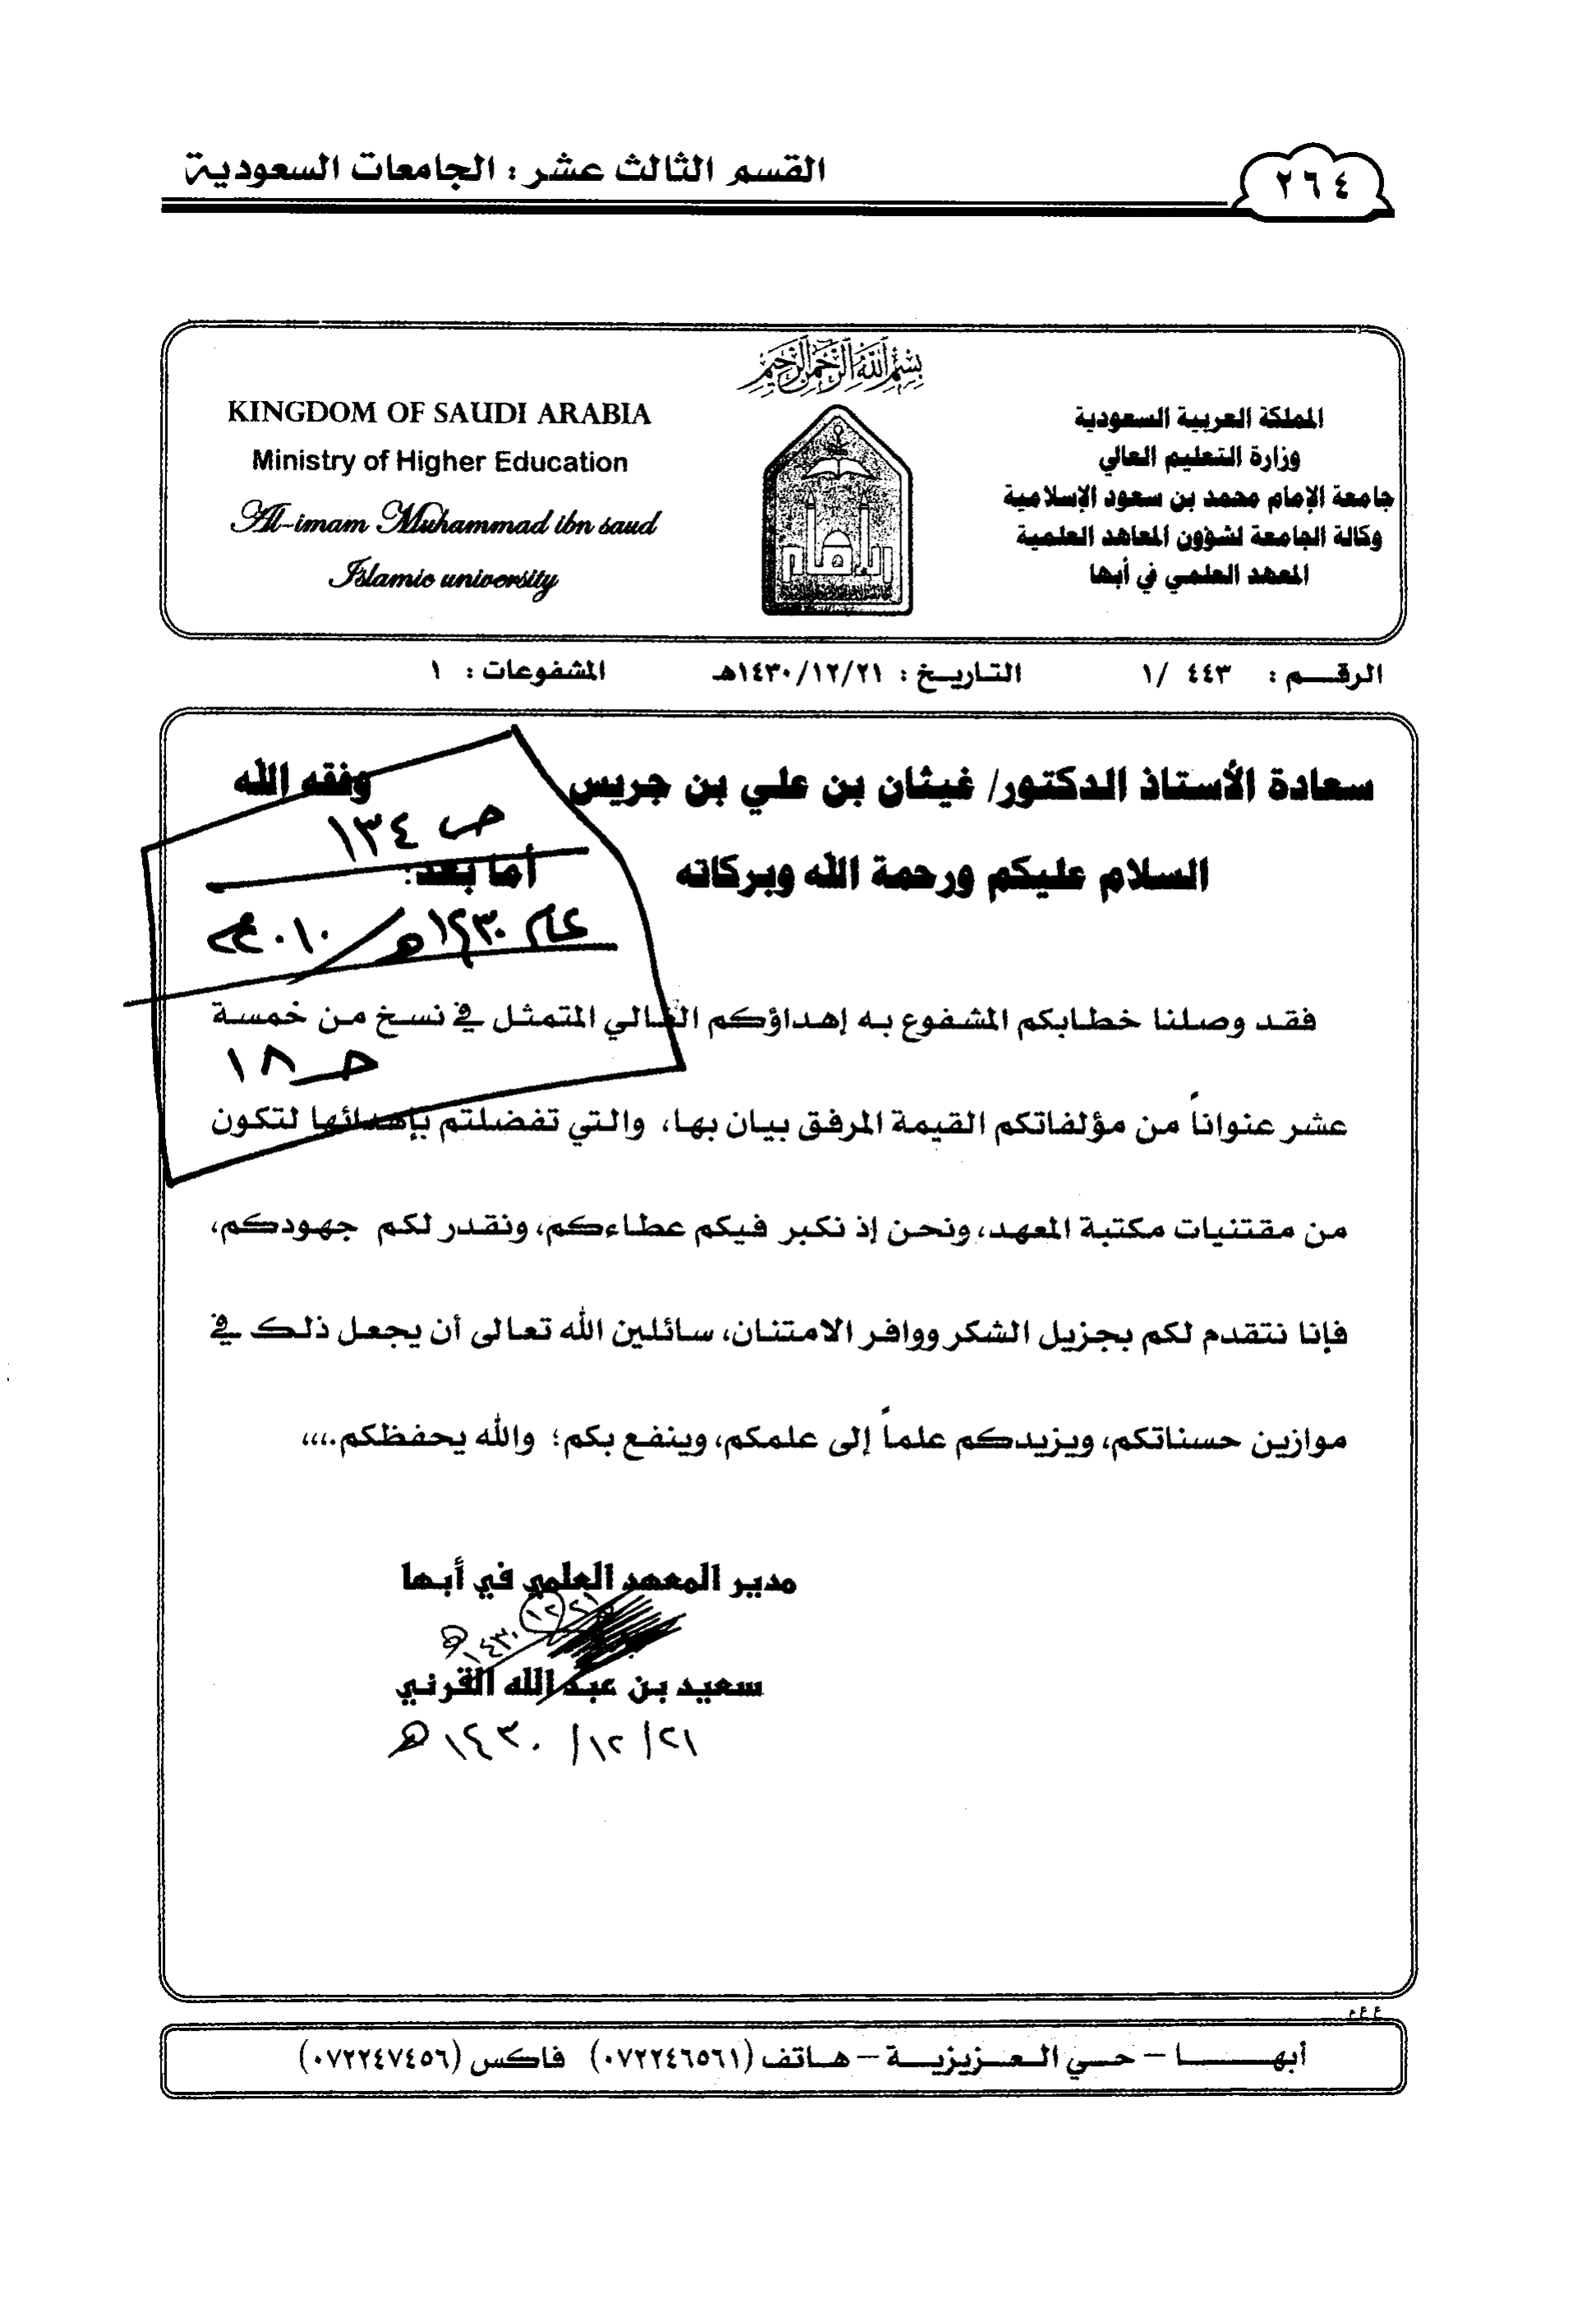 القسم الثالث عشر : الجامعات السعودية
٢٦٤
بسم الله الرحمن الرحيم
المملكة العربية السعودية
وزارة التعليم العالي
جامعة الإمام محمد بن سعود الإسلامية
وكالة الجامعة لشؤون المعاهد العلمية
المعهد العلمي في أبها
KINGDOM OF SAUDI ARABIA
Ministry of Higher Education
Al-imam Muhammad ibn saud
Islamic university
الرقم : ٤٤٣ /١ التاريخ : ١٤٣٠/١٢/٢١هـ المشفوعات : ١
سعادة الأستاذ الدكتور/ غيثان بن علي بن جريس وفقه الله
ص ١٣٤
السلام عليكم ورحمة الله وبركاته أما بعد:
عام ١٤٣٠هـ/٢٠١٠م
فقد وصلنا خطابكم المشفوع به إهداؤكم الغالي المتمثل في نسخ من خمسة
حـ ١٨
عشر عنواناً من مؤلفاتكم القيمة المرفق بيان بها، والتي تفضلتم بإهدائها لتكون
من مقتنيات مكتبة المعهد، ونحن إذ نكبر فيكم عطاءكم، ونقدر لكم جهودكم،
فإنا نتقدم لكم بجزيل الشكر ووافر الامتنان، سائلين الله تعالى أن يجعل ذلك في
موازين حسناتكم، ويزيدكم علماً إلى علمكم، وينفع بكم؛ والله يحفظكم.،،،
مدير المعهد العلمي في أبها
٢١ ١٢ ١٤٣٠هـ
سعيد بن عبدالله القرني
٢١/ ١٢/ ١٤٣٠ هـ
أبهـــا – حـي العـزيزيـة – هـاتف (٠٧٢٢٤٦٥٦١) فاكس (٠٧٢٢٤٧٤٥٦)